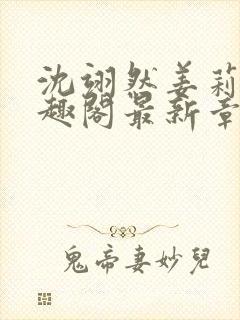 沈翊然姜莉
趣阁最新章
鬼帝妻妙兒